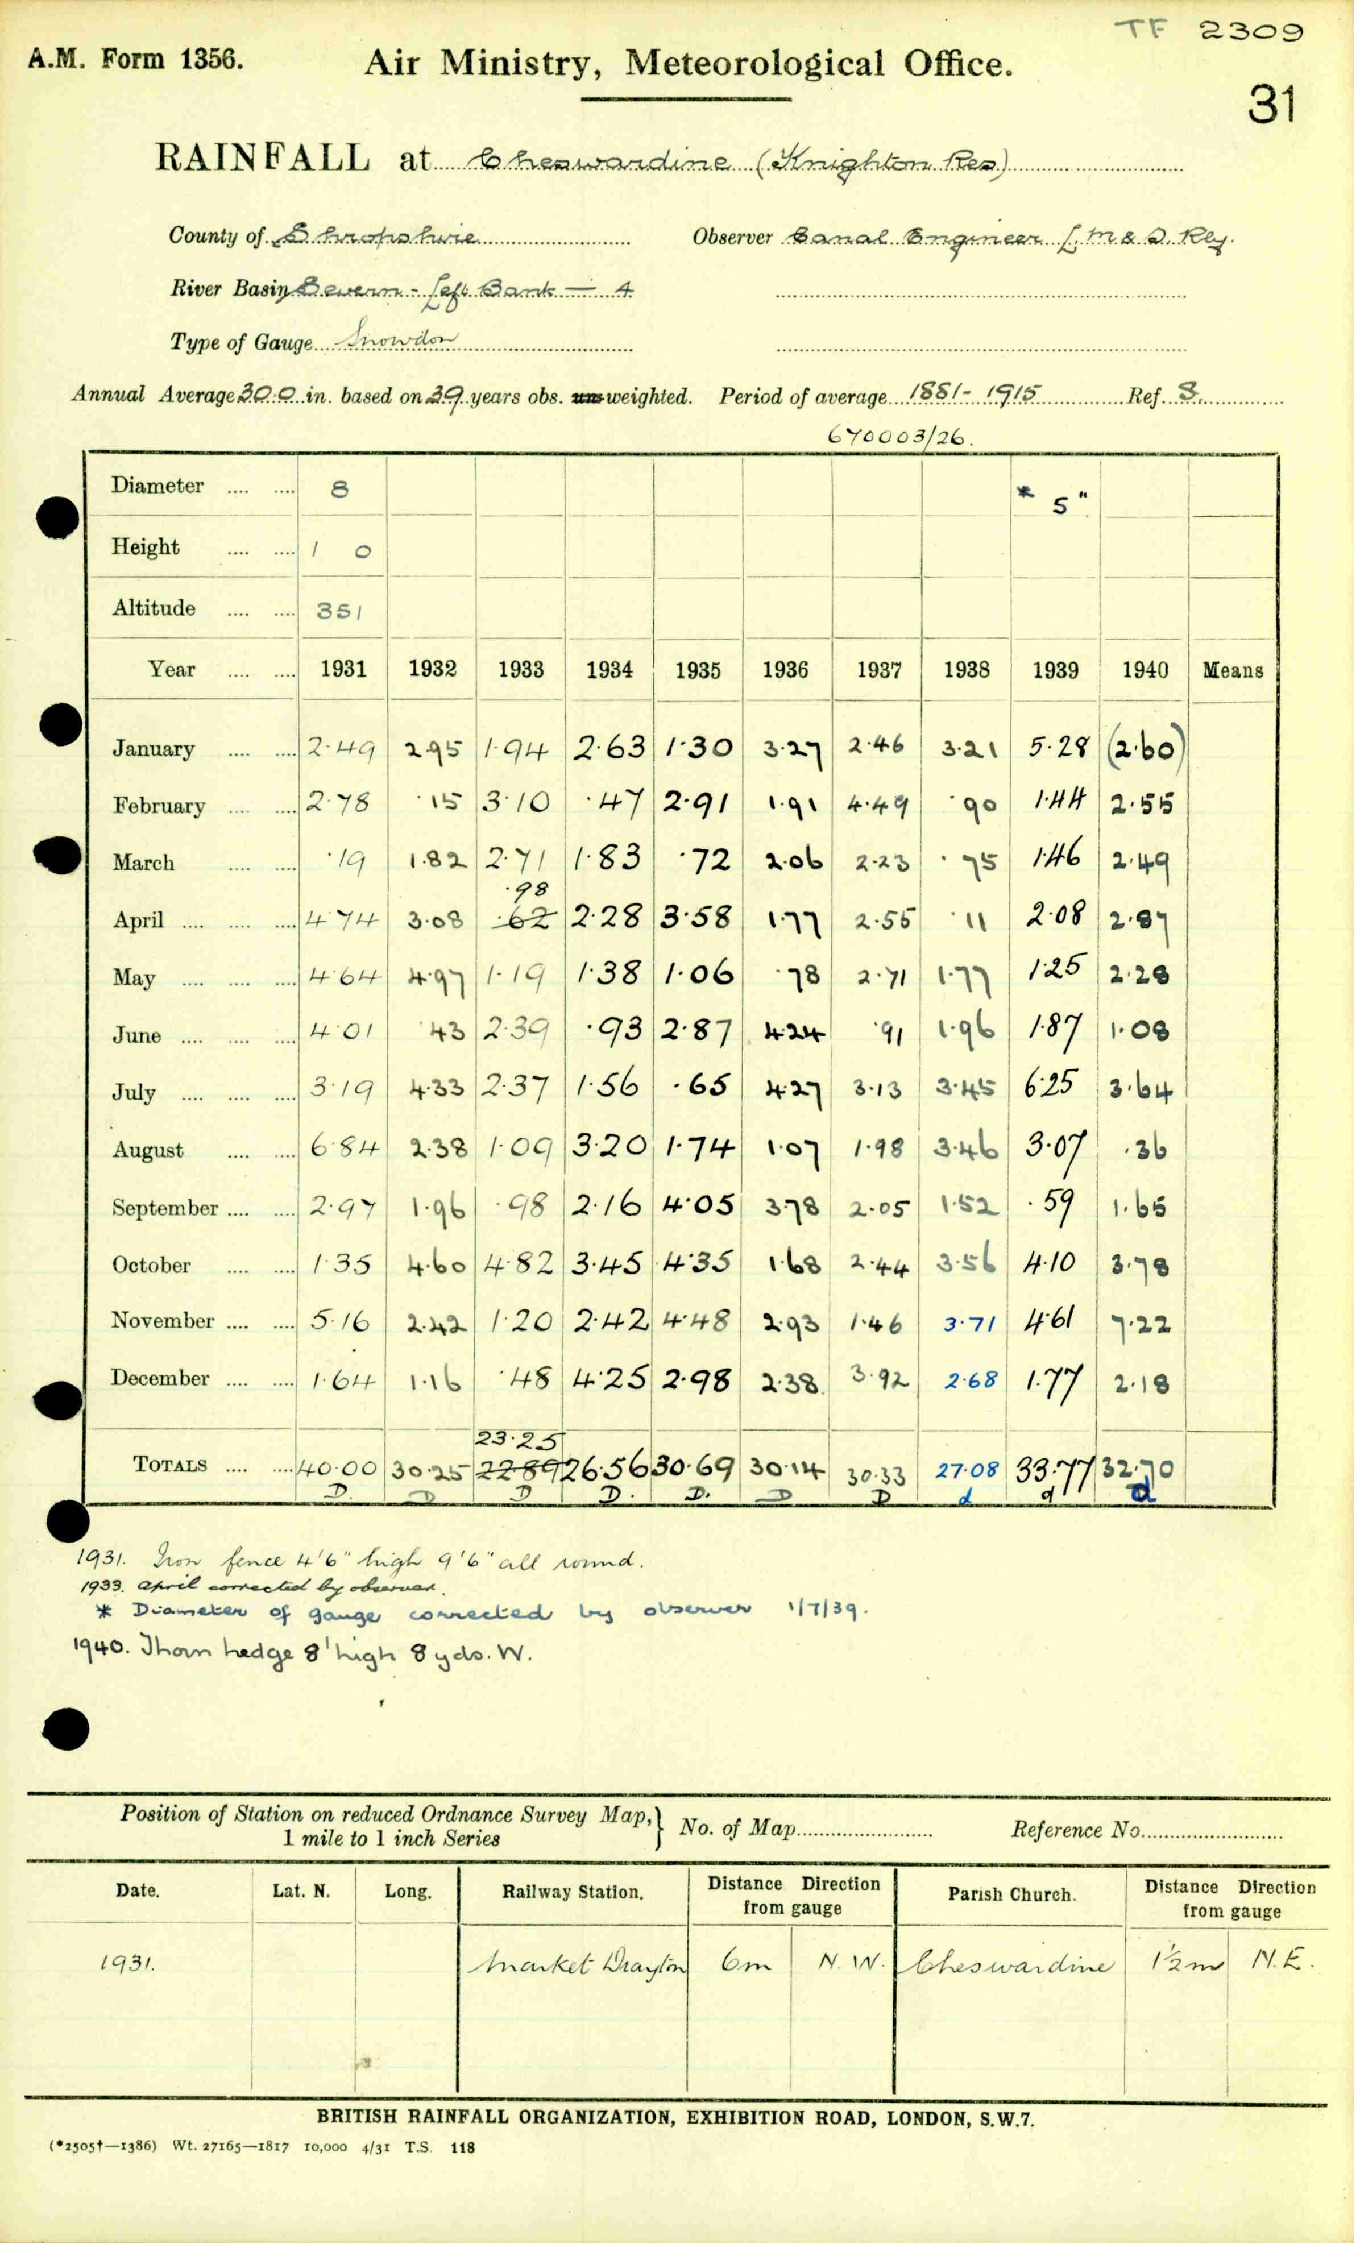 TF 2309
A.M. Form 1356. Air Ministry, Meteorological Office.
31
RAINFALL at Cheswardine (Knighton Res)
County of Shropshire Observer Canal Engineer L.M & S. Rly.
River Basin Severn - Left Bank — 4
Type of Gauge Snowdon
Annual Average 30.0 in. based on 39 years obs. unweighted. Period of average 1881 - 1915 Ref. S.
670003/26.
Diameter .... .... 8 * 5"
Height .... .... 1 0
Altitude .... .... 351
Year .... .... 1931 1932 1933 1934 1935 1936 1937 1938 1939 1940 Means
January .... .... 2.49 2.95 1.94 2.63 1.30 3.27 2.46 3.21 5.28 (2.60)
February .... .... 2.78 .15 3.10 .47 2.91 1.91 4.49 .90 1.44 2.55
March .... .... .19 1.82 2.71 1.83 .72 2.06 2.23 .75 1.46 2.49
.98
April .... .... .... 4.74 3.08 .62 2.28 3.58 1.77 2.55 .11 2.08 2.87
May .... .... .... 4.64 4.97 1.19 1.38 1.06 .78 2.71 1.77 1.25 2.28
June .... .... .... 4.01 .43 2.39 .93 2.87 4.24 .91 1.96 1.87 1.08
July .... .... .... 3.19 4.33 2.37 1.56 .65 4.27 3.13 3.45 6.25 3.64
August .... .... 6.84 2.38 1.09 3.20 1.74 1.07 1.98 3.46 3.07 .36
September .... .... 2.97 1.96 .98 2.16 4.05 3.78 2.05 1.52 .59 1.65
October .... .... 1.35 4.60 4.82 3.45 4.35 1.68 2.44 3.56 4.10 3.78
November .... .... 5.16 2.42 1.20 2.42 4.48 2.93 1.46 3.71 4.61 7.22
December .... .... 1.64 1.16 .48 4.25 2.98 2.38 3.92 2.68 1.77 2.18
23.25
TOTALS .... .... 40.00 30.25 22.89 26.56 30.69 30.14 30.33 27.08 33.77 32.70
D. D D D. D. D D d d d
1931. Iron fence 4'6" high 9'6" all round.
1933. April corrected by observer.
* Diameter of gauge corrected by observer 1/7/39.
1940. Thorn hedge 8' high 8 yds. W.
Position of Station on reduced Ordnance Survey Map,} No. of Map Reference No.
1 mile to 1 inch Series
Date. Lat. N. Long. Railway Station. Distance Direction from gauge Parish Church. Distance Direction from gauge
1931. Market Drayton 6m N.W. Cheswardine 1½m N.E.
BRITISH RAINFALL ORGANIZATION, EXHIBITION ROAD, LONDON, S.W.7.
(*2505†—1386) Wt. 27165—1817 10,000 4/31 T.S. 118